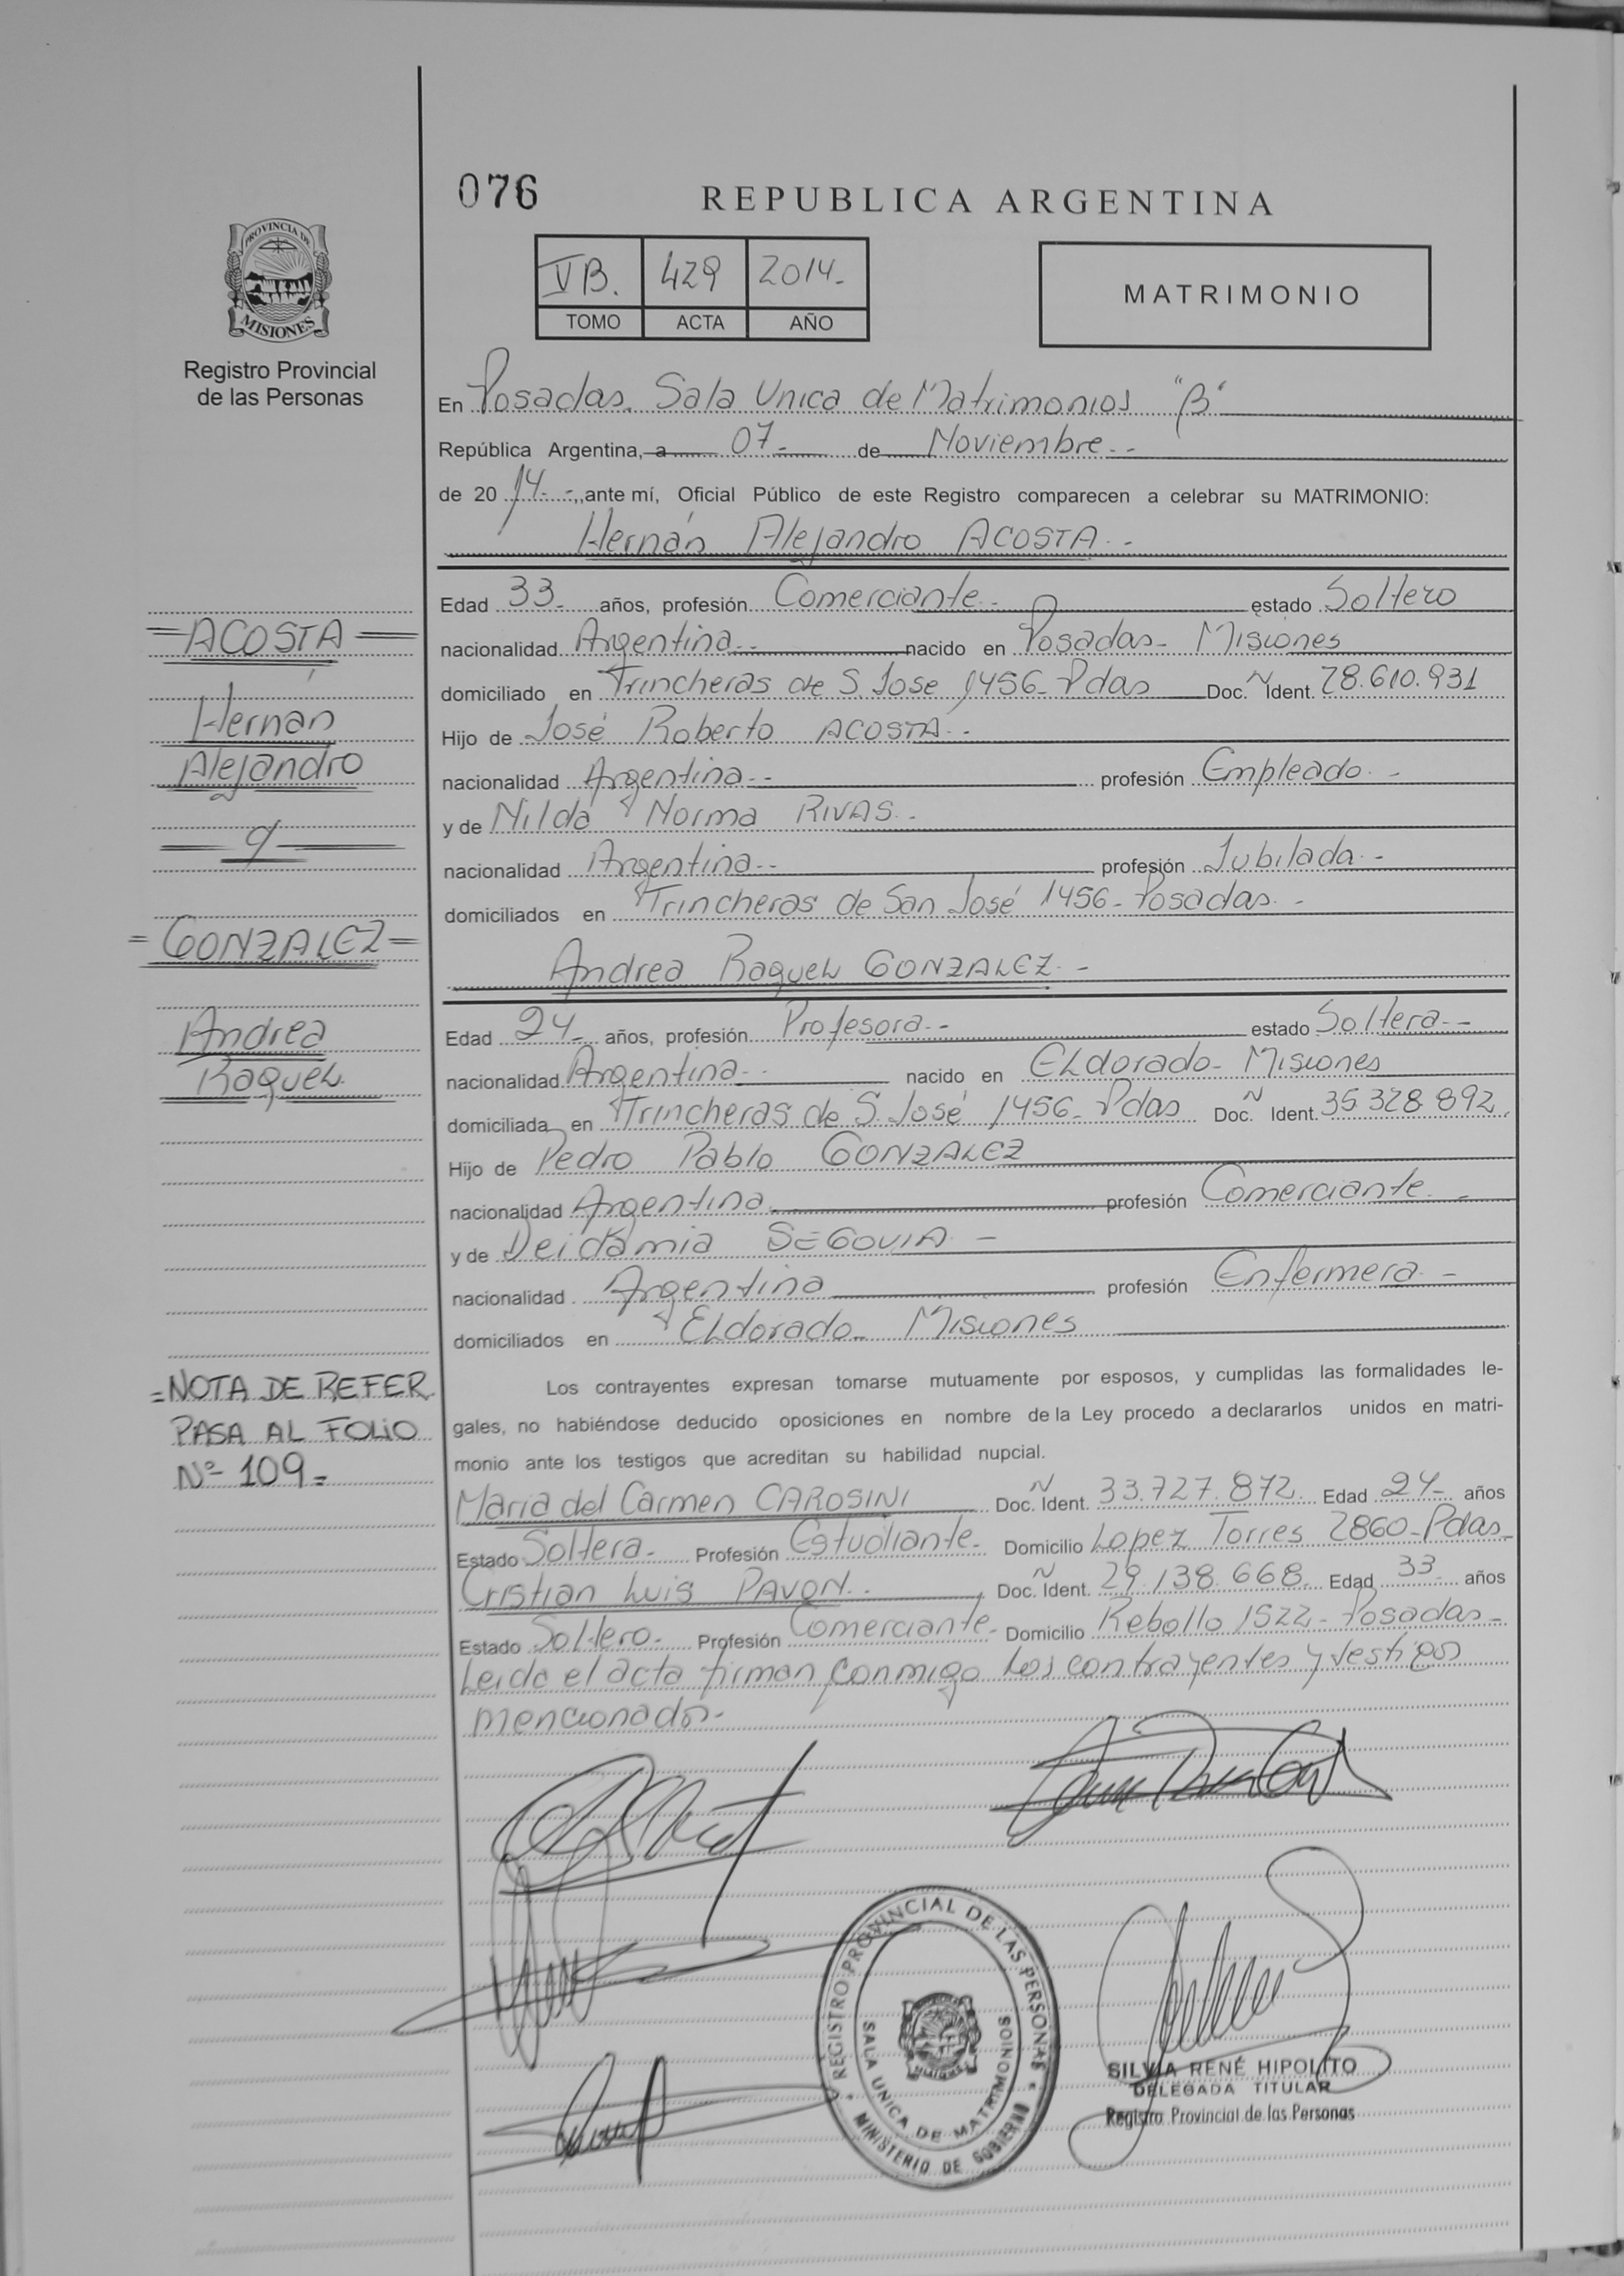 076
REPUBLICA ARGENTINA
PROVINCIA DE
MISIONES
Registro Provincial
de las Personas
VB. 429 2014.-
TOMO ACTA AÑO
MATRIMONIO
En Posadas. Sala Unica de Matrimonios "B"
República Argentina, a 07.- de Noviembre.--
de 20 14.-, ante mí, Oficial Público de este Registro comparecen a celebrar su MATRIMONIO:
Hernán Alejandro ACOSTA.-
Edad 33.- años, profesión Comerciante.- estado Soltero
nacionalidad Argentina.-- nacido en Posadas- Misiones
domiciliado en Trincheras de S. Jose 1456- Pdas Doc. N Ident. 28.610.931
Hijo de José Roberto ACOSTA.-
nacionalidad Argentina.-- profesión Empleado.-
y de Nilda Norma RIVAS.-
nacionalidad Argentina.-- profesión Jubilada.-
domiciliados en Trincheras de San José 1456- Posadas.-
Andrea Raquel GONZALEZ.-
Edad 24.- años, profesión Profesora.- estado Soltera.-
nacionalidad Argentina.-- nacido en Eldorado- Misiones
domiciliada en Trincheras de S. José 1456- Pdas Doc. N Ident. 35.328.892
Hijo de Pedro Pablo GONZALEZ
nacionalidad Argentina. profesión Comerciante.-
y de Deidamia SEGOVIA.-
nacionalidad Argentina profesión Enfermera.-
domiciliados en Eldorado- Misiones
Los contrayentes expresan tomarse mutuamente por esposos, y cumplidas las formalidades le-
gales, no habiéndose deducido oposiciones en nombre de la Ley procedo a declararlos unidos en matri-
monio ante los testigos que acreditan su habilidad nupcial.
Maria del Carmen CAROSINI Doc. N Ident. 33.727.872. Edad 24- años
Estado Soltera- Profesión Estudiante- Domicilio Lopez Torres 2860- Pdas-
Cristian Luis PAVON.- Doc. N Ident. 29.138.668. Edad 33- años
Estado Soltero- Profesión Comerciante- Domicilio Rebollo 1522- Posadas-
Leida el acta firman conmigo los contrayentes y testigos
mencionados-
=ACOSTA=
Hernán
Alejandro
y
=GONZALEZ=
Andrea
Raquel
=NOTA DE REFER.
PASA AL FOLIO
Nº 109=
REGISTRO PROVINCIAL DE LAS PERSONAS
SALA UNICA DE MATRIMONIOS
MINISTERIO DE GOBIERNO
SILVIA RENÉ HIPOLITO
DELEGADA TITULAR
Registro Provincial de las Personas